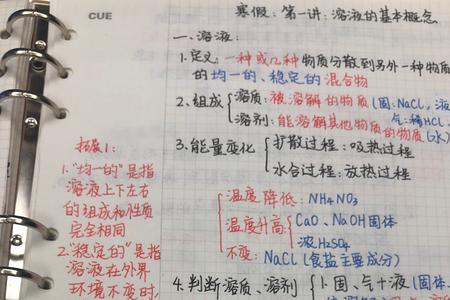 CUE
寒假：第一讲：溶液的基本概念
一、溶液：
1.定义：一种或几种物质分散到另外一种物质
的均一的、稳定的混合物
2.组成 溶质：被溶解的物质(固：NaCl，液
气：稀HCl、
溶剂：能溶解其他物质的物质(水)
3.能量变化 扩散过程：吸热过程
水合过程：放热过程
温度降低：NH4NO3
温度升高 CaO、NaOH固体
浓H2SO4
不变：NaCl(食盐主要成分)
4.判断溶质、溶剂 1.固、气+液(固体、
拓展1：
1."均一的"是指
溶液上下左右
的组成和性质
完全相同
2."稳定的"是指
溶液在外界
环境不变时,